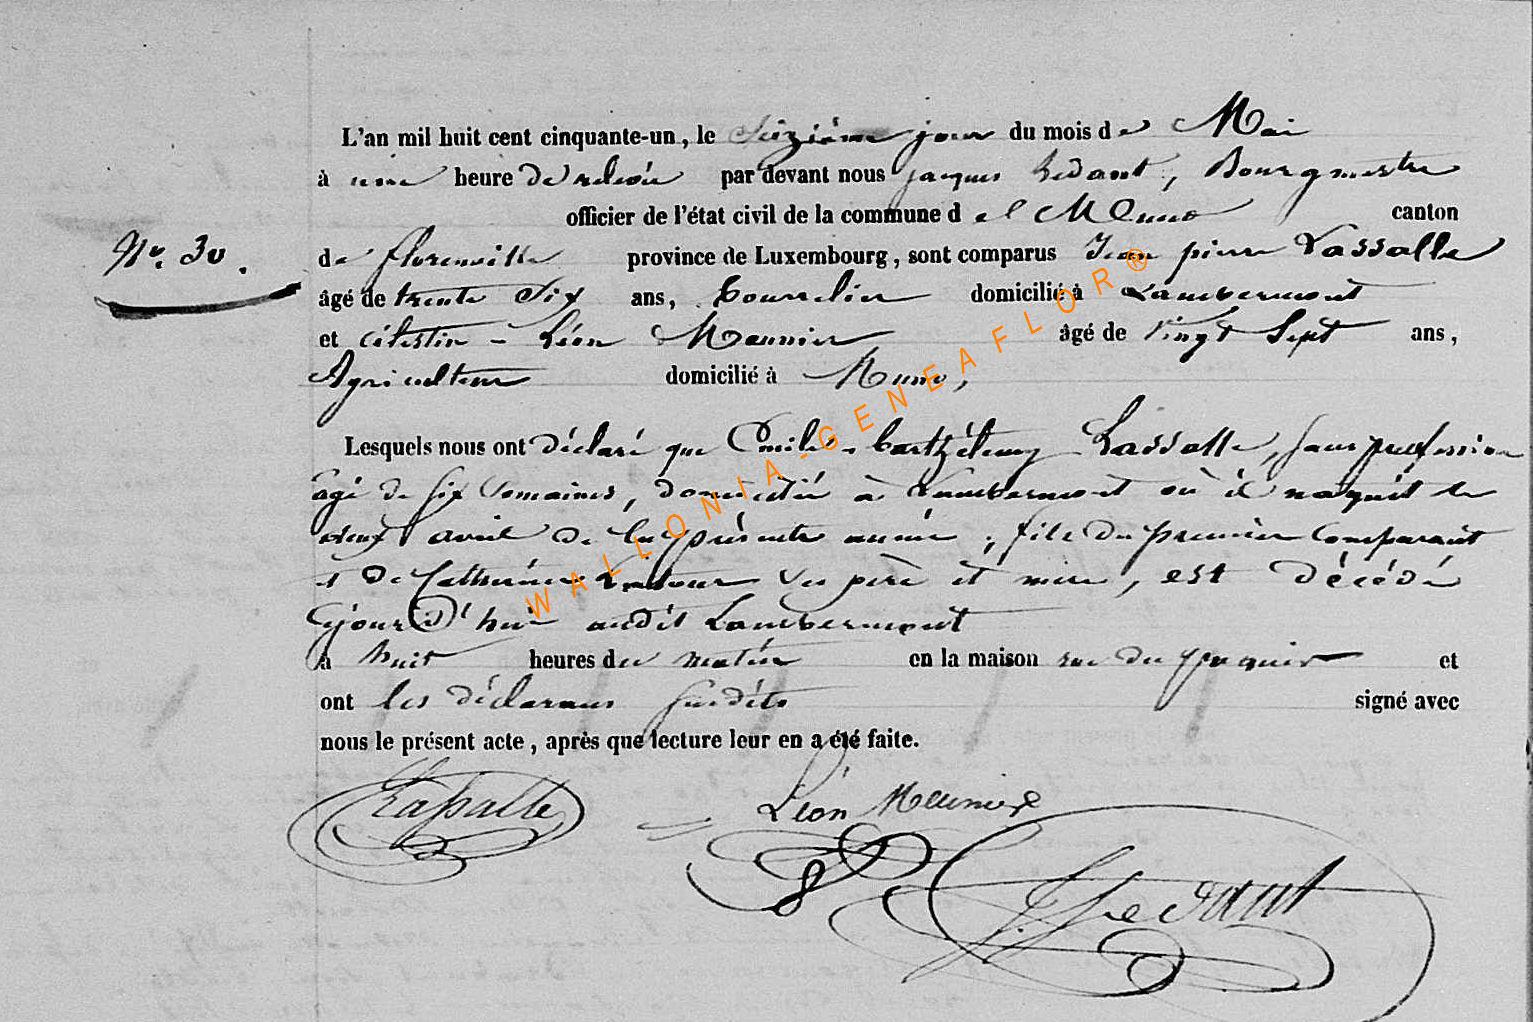 L'an mil huit cent cinquante-un, le Seizième jour du mois de Mai
à une heure de relevée par devant nous jacques Sedant, Bourgmestre
officier de l'état civil de la commune de Muno canton
Nr. 30.
de florenville province de Luxembourg, sont comparus Jean pierre Lassalle
âgé de trente Six ans, Bourrelier domicilié à Lambermont
et célestin - Léon Meunier âgé de vingt Sept ans,
Agriculteur domicilié à Muno,
Lesquels nous ont déclaré que Emile - barthélemy Lassalle, sans profession
agé de six Semaines, domicilié à Lambermont où il naquit le
deux avril de la présente année, fils du premier Comparant
et de Catherine ses père et mère, est décédé
cejour D'hui audit Lambermont
à huit heures du matin en la maison rue du et
ont les déclarans susdits signé avec
nous le présent acte, après que lecture leur en a été faite.
Lassalle
Léon Meunier
J. Sedant
WALLONIA-GENEAFLOR®